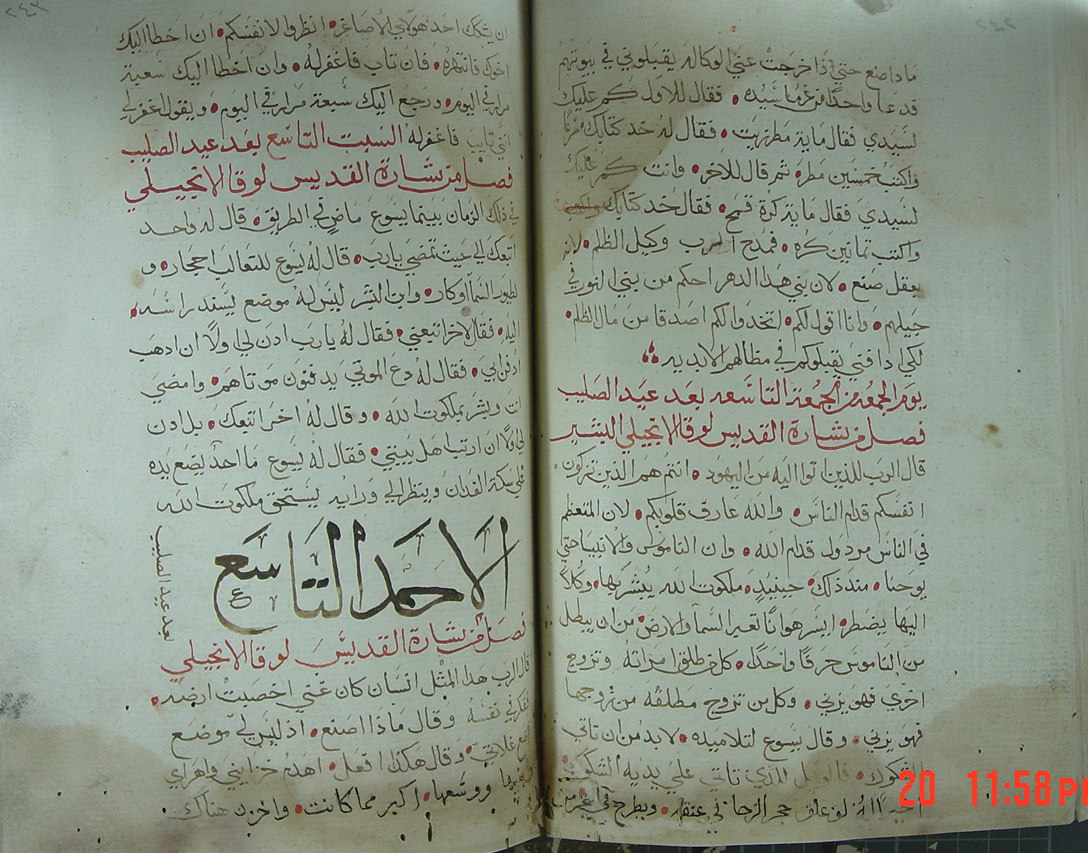 ماذا اصنع حتى اذا خرجت عني الوكاله يقبلوني في بيوتهم
فدعا واحدًا من غرما سيده • فقال للاول كم عليك
لسيدي فقال ماية مطر زيت • فقال له خد كتابك
واكتب خمسين مطر • ثم قال للاخر • وانت كم عليك
لسيدي فقال ماية كرة قمح • فقال خد كتابك
واكتب ثمانين كره • فمدح الرب وكيل الظلم • لانه
بعقل صنع • لان بني هدا الدهر احكم من بني النور في
جيلهم • وانا اقول لكم • اتخدوا لكم اصدقا من مال الظلم •
لكي اذا فني يقبلوكم في مظالهم الابديه
يوم الجمعه من الجمعة التاسعه بعد عيد الصليب
فصل من بشارة القديس لوقا الانجيلي البشير
قال الرب للذين اتوا اليه من اليهود • انتم هم الذين تزكون
انفسكم قدام الناس • والله عارف قلوبكم • لان المتعظم
في الناس مردول قدام الله • وان الناموس والانبيا حتى
يوحنا • منذ ذلك • حينيدٍ • ملكوت الله يُبشر بها • وكلاً
اليها يضطر • ايسر هوانًا تغير السما والارض • من ان يبطل
من الناموس حرفًا واحدًا • كل من طلق امراته وتزوج
اخرى فهو يزني • وكل من تزوج مطلقه من زوجها
فهو يزني • وقال يسوع لتلاميده • لابد من ان تاتي
الشكوك • فالويل للذي تاتي على يديه الشكوك
لو علق حجر الرحا في عنقه • ويطرح في البحر من
ان يشكك احد هولاي الاصاغر • انظروا لانفسكم • ان اخطا اليك
اخوك فانتهره • فان تاب فاغفر له • وان اخطا اليك سبعة
مرار في اليوم • ورجع اليك سبعة مرار في اليوم • ويقول اغفر لي
انني تايب فاغفر له السبت التاسع بعد عيد الصليب
فصل من بشارة القديس لوقا الانجيلي
في ذلك الزمان بينما يسوع ماضٍ في الطريق • قال له واحد
اتبعك الى حيث تمضي يارب • قال له يسوع للثعالب احجار • و
لطيور السما اوكار • وابن البشر ليس له موضع يسند راسه •
اليه • فقال لاخر اتبعني • فقال له يارب ادن لي اولًا ان ادهب
ادفن ابي • فقال له دع الموتي يدفنون موتاهم • وامضي
انت وبشر بملكوت الله • وقال له اخر اتبعك • بل ادن
لي اولًا ان ارتب اهل بيتي • فقال له يسوع ما احدٌ يضع يده
على سكة الفدان وينظر الى ورايه ليستحق ملكوت الله
الاحد التاسع
بعد عيد الصليب
فصل من بشارة القديس لوقا الانجيلي
قال الرب هدا المثل انسان كان غني اخصبت ارضه •
ففكر في نفسه وقال ماذا اصنع • اذ ليس لي موضع
اضع غلاتي • وقال هكذا افعل • اهدم خزايني واهراي
ووسعها • اكبر مما كانت • واخزن هناك
20 11:58 P